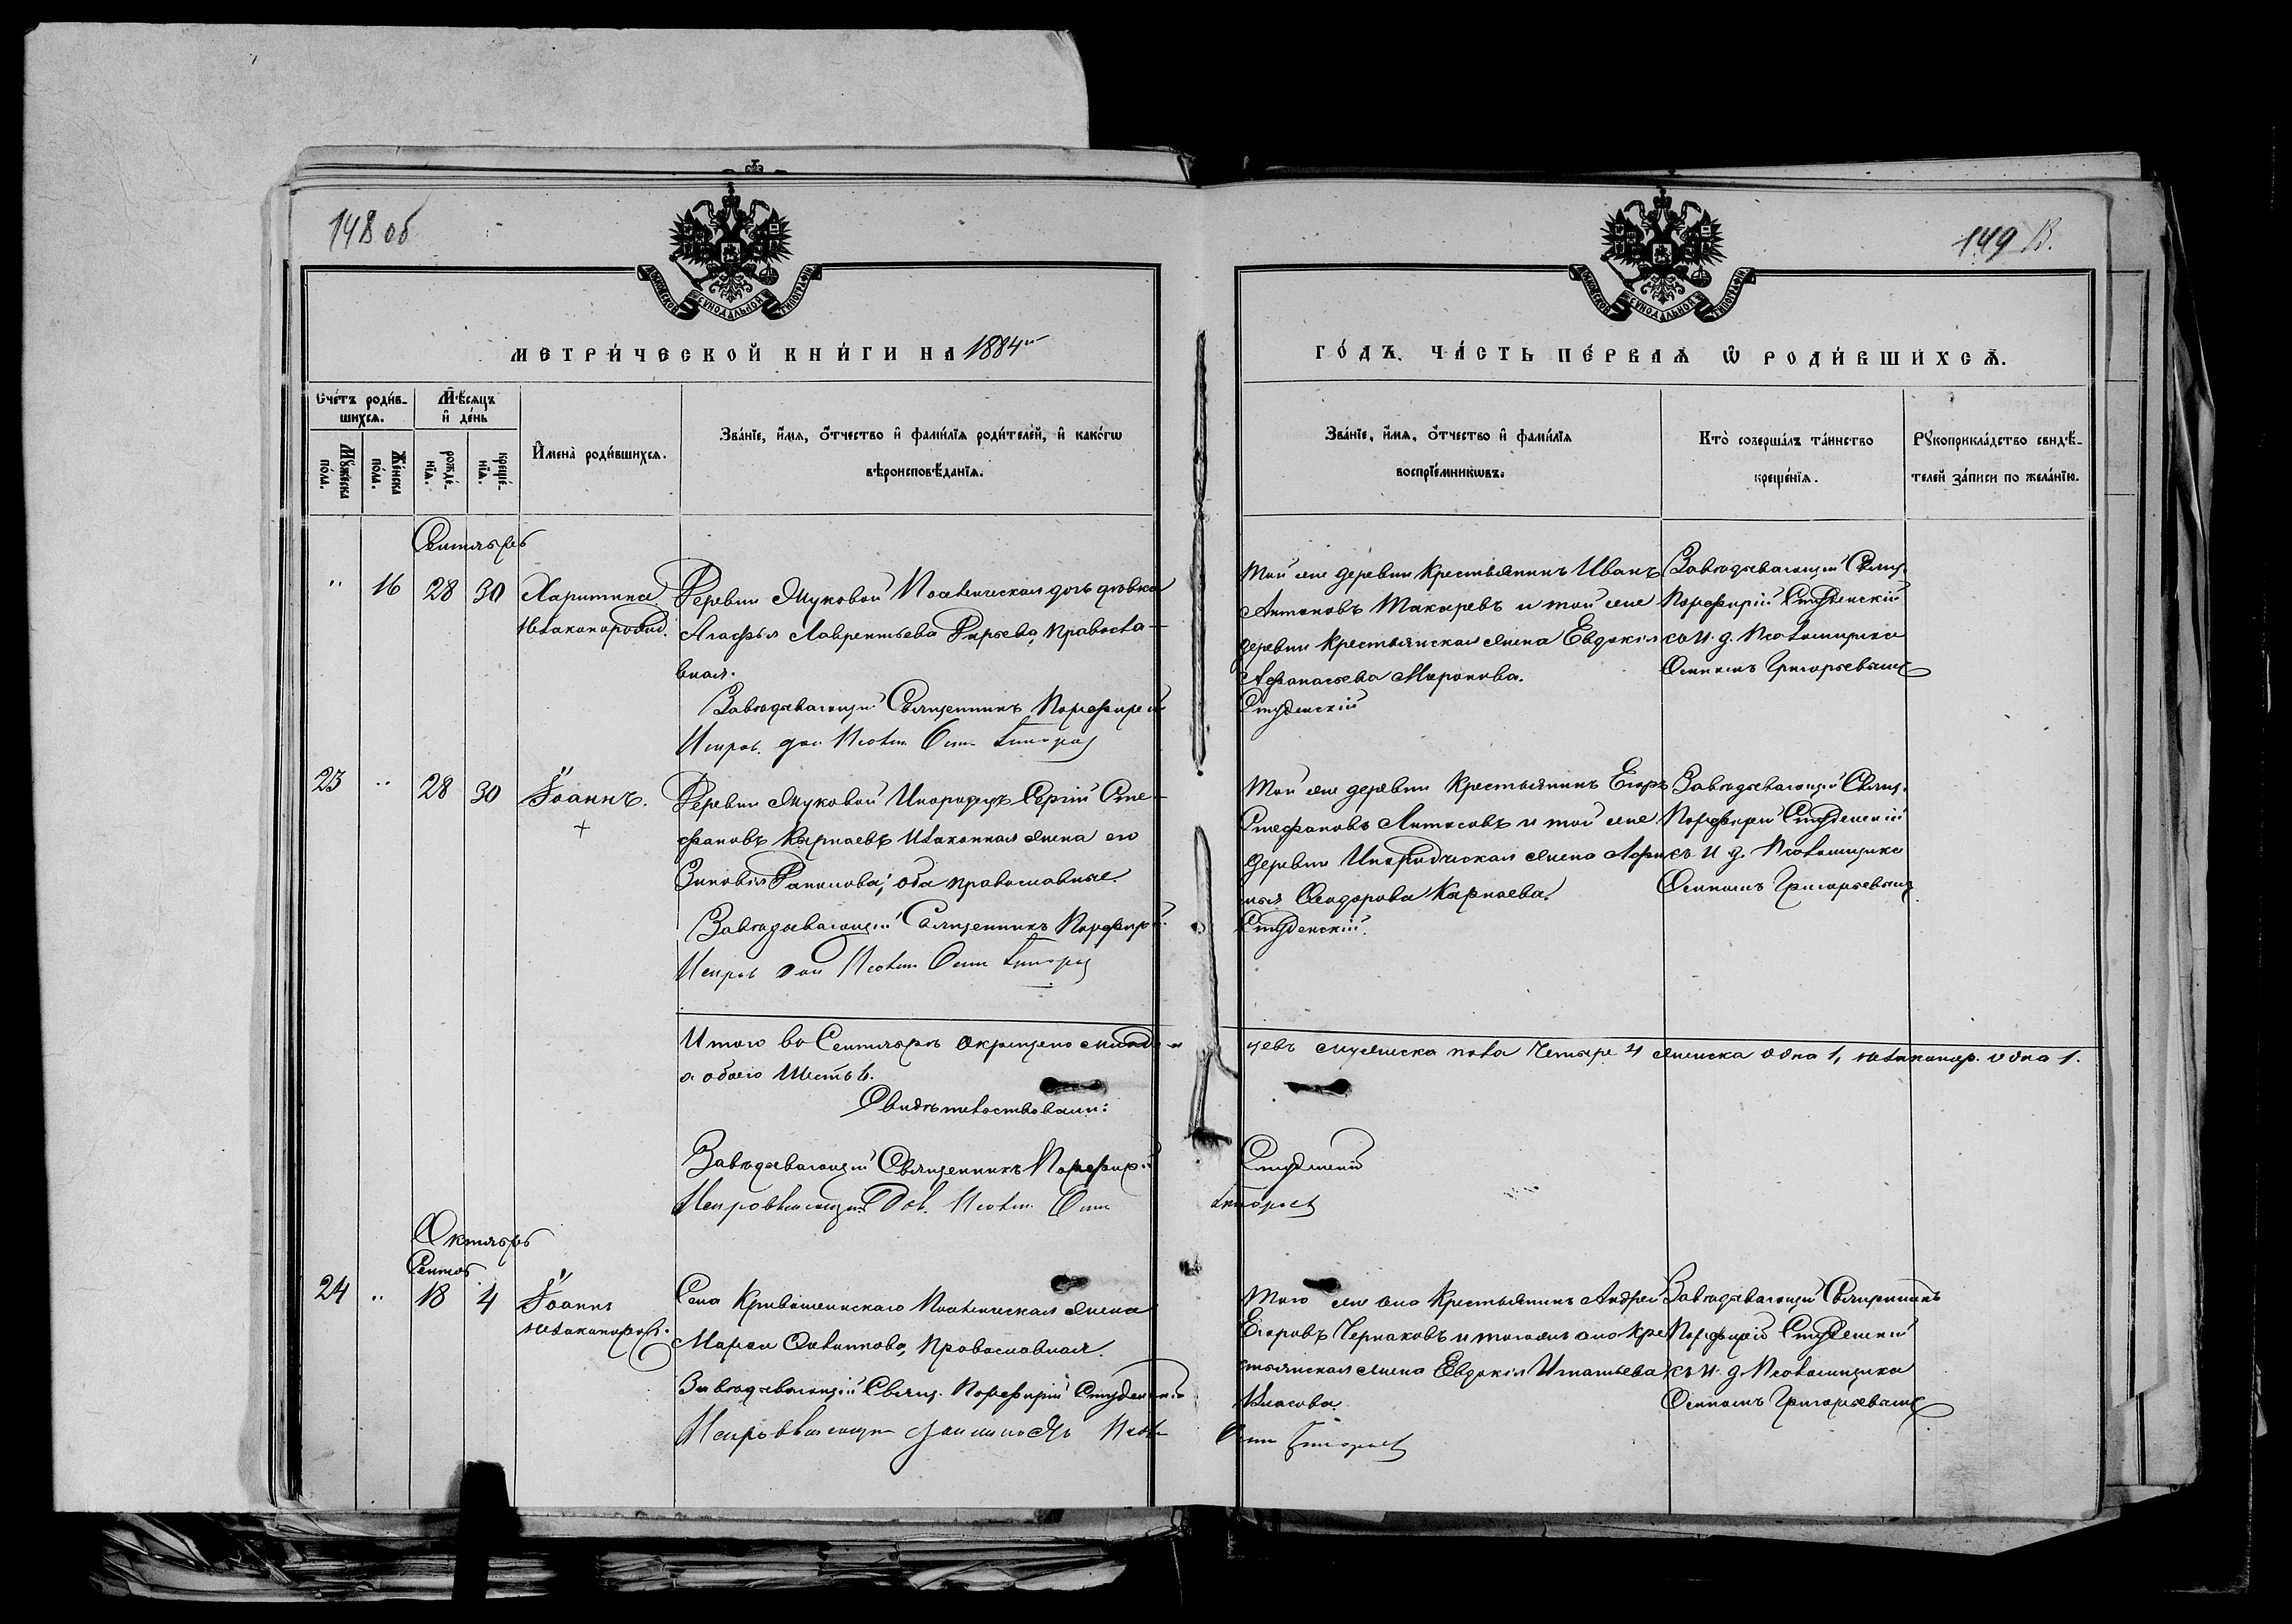 148 об
149 В.
МОСКОВСКОЙ СУНОДАЛЬНОЙ ТИПОГРАФІИ
МОСКОВСКОЙ СУНОДАЛЬНОЙ ТИПОГРАФІИ
МЕТРИ́ЧЕСКОЙ КНИ́ГИ НА 1884й
ГО́ДЪ, ЧА́СТЬ ПЕ́РВАѦ Ѡ РОДИ́ВШИХСѦ.
Сче́тъ роди́в-
шихся.
Мꙋ́жеска по́ла.
Же́нска по́ла.
Мѣ́сяцъ
и де́нь
рожде́-
нїя.
креще́-
нїя.
Имена̀ роди́вшихся.
Зва́нїе, и́мя, о́тчество и фами́лїя роди́телей, и како́гѡ
вѣроисповѣ́данїя.
Зва́нїе, и́мя, о́тчество и фами́лїя
воспрїе́мникѡвъ.
Кто̀ соверша́лъ та́инство
креще́нїя.
Рꙋкоприкла́дство свидѣ́-
телей за́писи по жела́нїю.
Сентябрь
" 16 28 30 Харитина
незаконорожд.
Деревни Жуковой Поселенческая дочь девка
Агафья Лаврентьева Юрьева, православ-
ная.
Завѣдывающій Священникъ Порфирій
Той же деревни Крестьянинъ Иванъ
Антоновъ Токаревъ и той же
деревни крестьянская жена Евдокія
Афанасьева Миронова.
Студенскій
Завѣдывающій Свящ.
Порфирій Студенскій
съ И. д. Псаломщика
Осипомъ Григорьевымъ
23 " 28 30 Іоаннъ.
+
Деревни Жуковой Инородецъ Сергій Сте-
фановъ Карпаевъ и законная жена его
Зиновія Данилова; оба православные.
Завѣдывающій Священникъ Порфирій
Той же деревни Крестьянинъ Егоръ
Стефановъ Антясовъ и той же
деревни Инородческая жена Афи-
нья Ѳеодорова Карпаева.
Студенскій.
Завѣдывающій Свящ.
Порфирій Студенскій
съ И. д. Псаломщика
Осипомъ Григорьевымъ
Итого въ Сентябрѣ окрещено младен-
цевъ мужеска пола четыре 4 женска одна 1, незаконор. одна 1.
а обоего шесть 6.
Свидѣтельствовали:
Завѣдывающій Священникъ Порфирій
Студенскій
Октябрь
Сентяб.
24 " 18 4 Іоаннъ
незаконорожд.
Села Кривошеинскаго Поселенческая жена
Марья Осипова, православная.
Завѣдывающій Свящ. Порфирій Студенскій
Того же села Крестьянинъ Андрей
Егоровъ Черпаковъ и того же села кре-
стьянская жена Евдокія Игнатьева
Власова.
Завѣдывающій Священникъ
Порфирій Студенскій
съ И. д. Псаломщика
Осипомъ Григорьевымъ